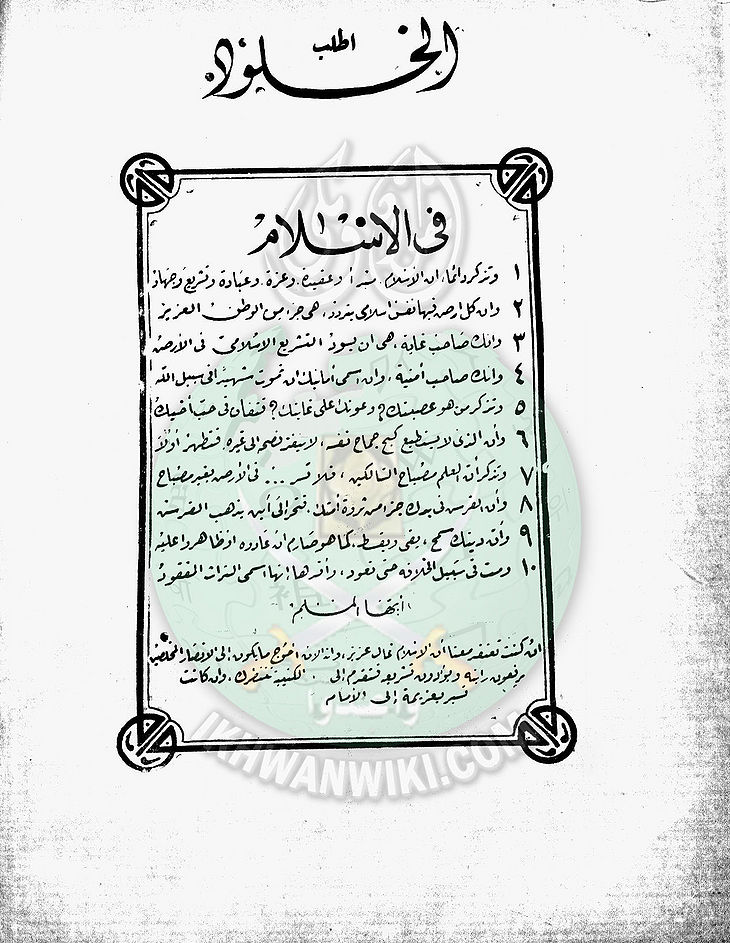 اطلب
الخلود
في الإسلام
١ وتذكر دائما، ان الإسلام مبدأ وعقيدة. وعزة. وعبادة وتشريع وجهاد
٢ وان كل ارض فيها نفس اسلامي يتردد، هي جزء من الوطن العزيز
٣ وانك صاحب غاية، هي ان يسود التشريع الاسلامي في الأرض
٤ وانك صاحب أمنية، وان اسمى أمانيك ان تموت شهيدا في سبيل الله
٥ وتذكر من هو عصبيتك؟ وعونك على غايتك؟ فتفان في حب أخيك
٦ وأن الذي لا يستطيع كبح جماح نفسه، لا ينفذ نصحه الى غيره. فتطهر أولا
٧ وتذكر أن العلم مصباح السالكين، فلا تسر ... في الأرض بغير مصباح
٨ وأن القرش في يدك جزء من ثروة أمتك. فتحر إلى أين يذهب القرش
٩ وأن دينك سمح، يعفو ويقسط، كما هو صارم ان عادوه او ظاهروا عليه
١٠ ومت في سبيل الخلافة حتى تعود، إنها اسمى التراث المفقود
أيها المسلم
ان كنت تعتقد معنا أن الإسلام غال عزيز، وانه الان احوج ما يكون إلى الانصار المخلصين
يرفعون رايته ويؤدون تشريعه فتقدم إلى . الكتيبة تنتظرك، وان كانت
تسير بعزيمة إلى الأمام
IKHWANWIKI.COM